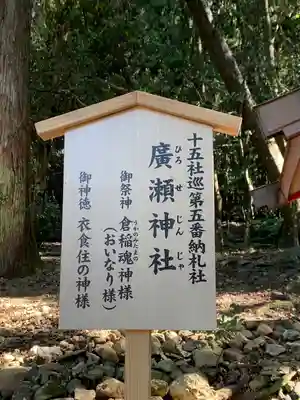 十五社巡第五番納札社
廣瀬神社
ひろせじんじゃ
御祭神 倉稲魂神様
うかのみたま
(おいなり様)
御神徳 衣食住の神様